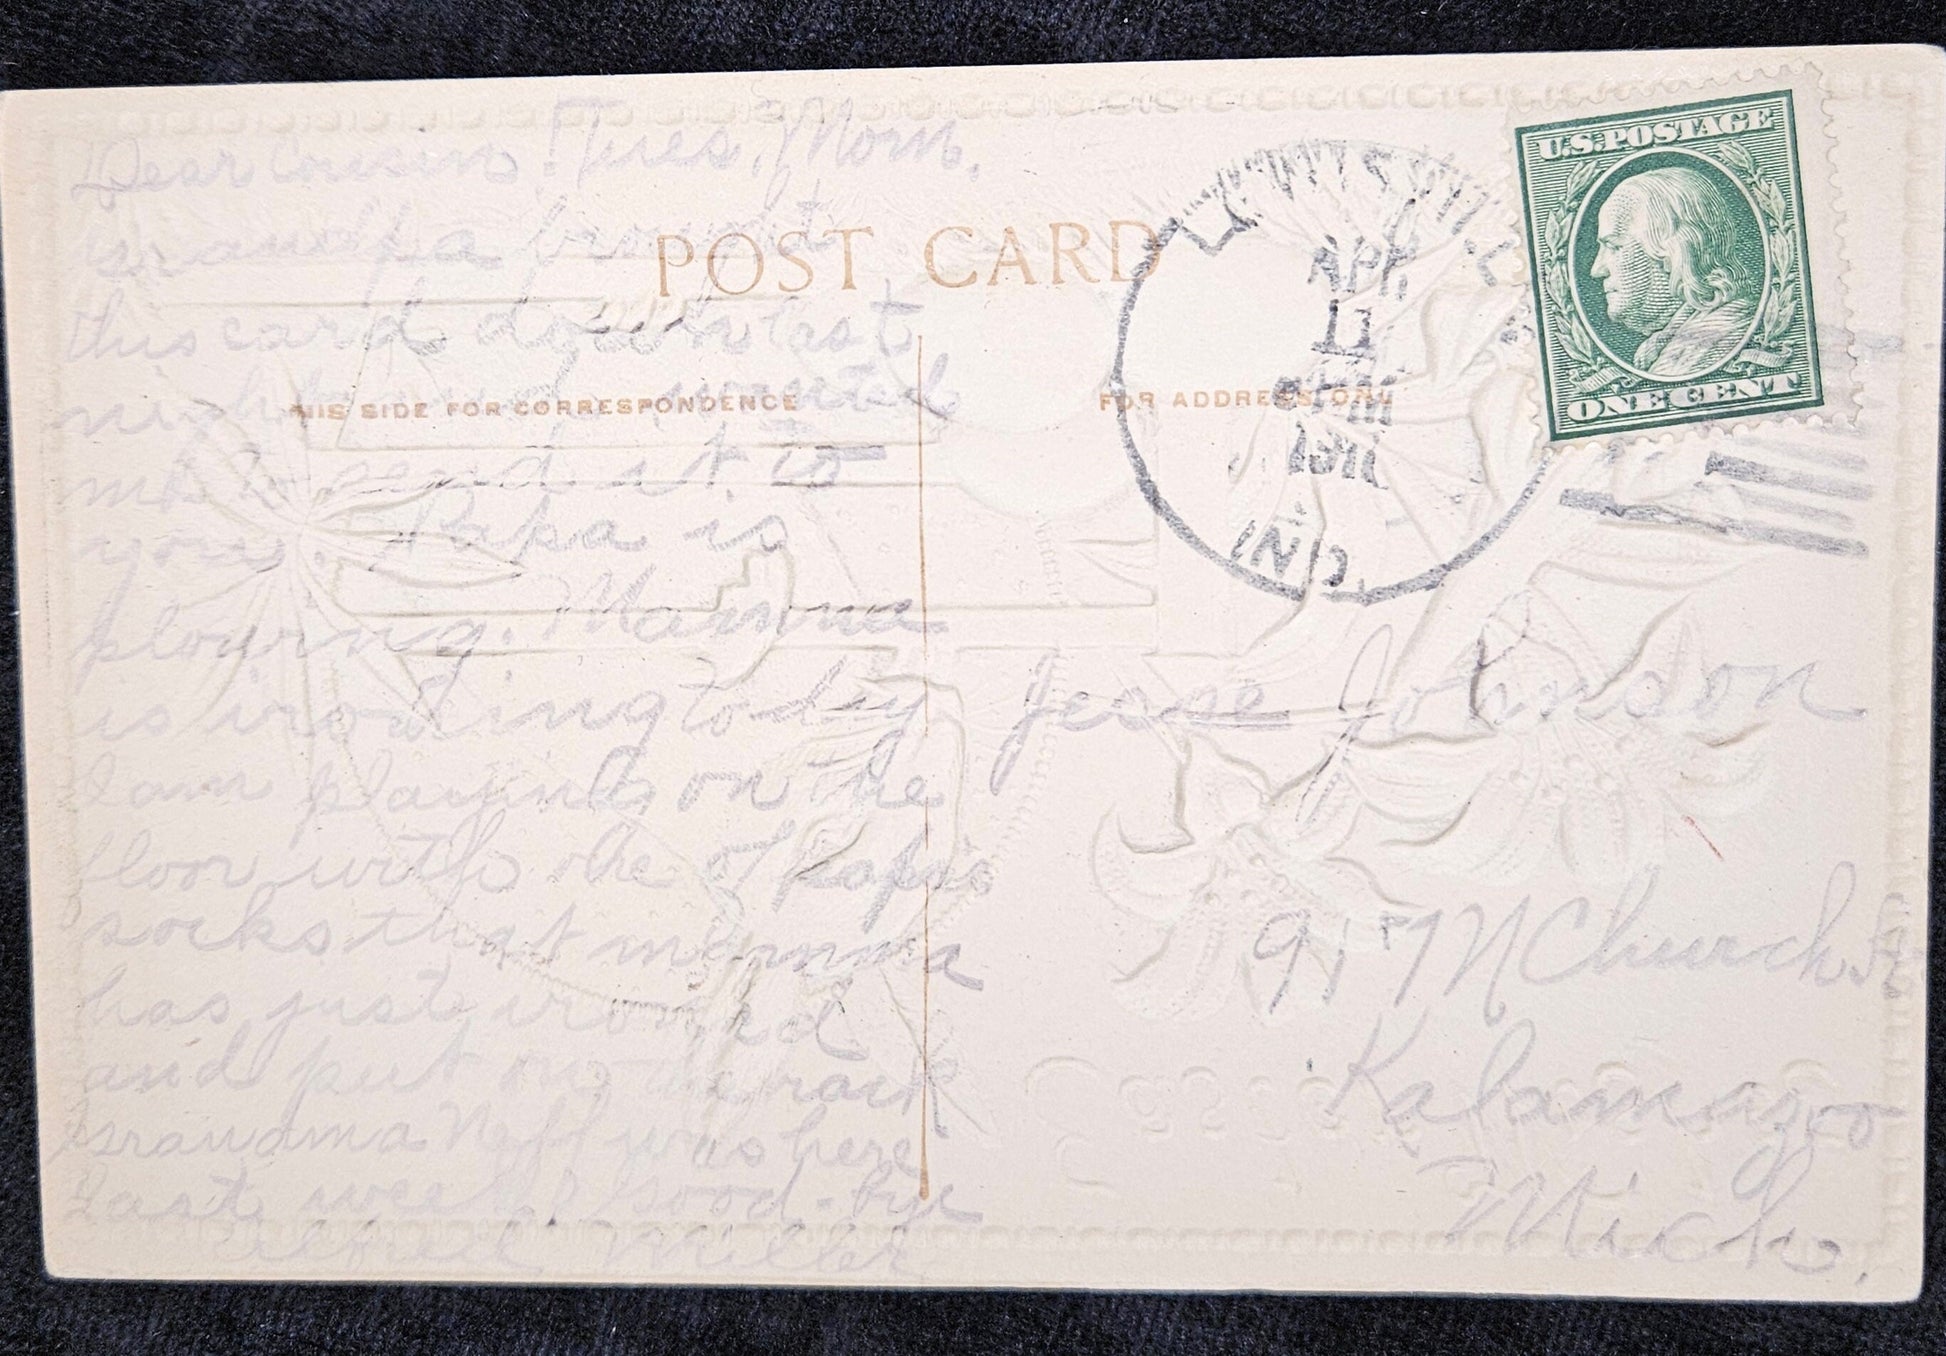 Dear Cousin. Tues, Morn,
Grandpa brought
this card down last
night and wanted
me to send it to
you. Papa is
plowing. Mamma
is ironing to-day
I am playing on the
floor with one of Papa's
socks that mamma
has just ironed
and put on the rack
Grandma Neff was here
last week. Good-bye
Miller
POST CARD
THIS SIDE FOR CORRESPONDENCE
FOR ADDRESS ONLY
LEWISVILLE
APR
11
1911
IND.
U.S. POSTAGE
ONE CENT
Jesse Johnson
917 N Church St
Kalamazoo
Mich.